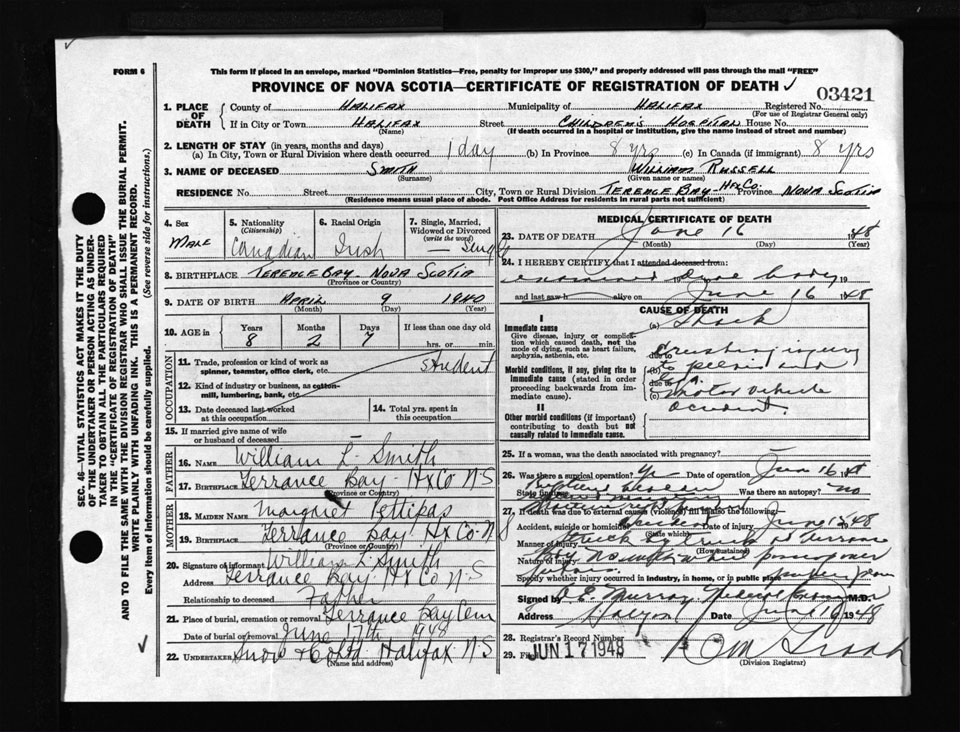 FORM 6
This form if placed in an envelope, marked "Dominion Statistics—Free, penalty for improper use $300," and properly addressed will pass through the mail "FREE"
PROVINCE OF NOVA SCOTIA—CERTIFICATE OF REGISTRATION OF DEATH
03421
1. PLACE OF DEATH
County of HALIFAX Municipality of HALIFAX Registered No.
(For use of Registrar General only)
If in City or Town HALIFAX Street CHILDREN'S HOSPITAL House No.
(Name) (If death occurred in a hospital or institution, give the name instead of street and number)
2. LENGTH OF STAY (in years, months and days)
(a) In City, Town or Rural Division where death occurred 1 day (b) In Province 8 yrs (c) In Canada (if immigrant) 8 yrs
3. NAME OF DECEASED SMITH WILLIAM RUSSELL
(Surname) (Given name or names)
RESIDENCE No. Street City, Town or Rural Division TERENCE BAY - HFX Co. Province NOVA SCOTIA
(Residence means usual place of abode. Post Office Address for residents in rural parts not sufficient)
4. Sex MALE
5. Nationality (Citizenship) Canadian
6. Racial Origin Irish
7. Single, Married, Widowed or Divorced (write the word) Single
8. BIRTHPLACE TERENCE BAY - NOVA SCOTIA
(Province or Country)
9. DATE OF BIRTH APRIL 9 1940
(Month) (Day) (Year)
10. AGE in Years Months Days If less than one day old
8 2 7 hrs. or min.
OCCUPATION
11. Trade, profession or kind of work as spinner, teamster, office clerk, etc. Student
12. Kind of industry or business, as cotton-mill, lumbering, bank, etc.
13. Date deceased last worked at this occupation
14. Total yrs. spent in this occupation
15. If married give name of wife or husband of deceased
FATHER
16. Name William L. Smith
17. Birthplace Terrance Bay Hx Co N S
(Province or Country)
MOTHER
18. Maiden Name Margaret Pettipas
19. Birthplace Terrance Bay Hx Co. N S
(Province or Country)
20. Signature of informant William L Smith
Address Terrance Bay Hx Co N S
Relationship to deceased Father
21. Place of burial, cremation or removal Terrance Bay Cem
Date of burial or removal June 17th 1948
22. Undertaker Snow & Co Ltd Halifax N S
(Name and address)
MEDICAL CERTIFICATE OF DEATH
23. DATE OF DEATH June 16 1948
(Month) (Day) (Year)
24. I HEREBY CERTIFY that I attended deceased from:
examined body 19
and last saw h alive on June 16 1948
CAUSE OF DEATH
I
Immediate cause
Give disease, injury or complication which caused death, not the mode of dying, such as heart failure, asphyxia, asthenia, etc.
(a) Shock
due to
Morbid conditions, if any, giving rise to immediate cause (stated in order proceeding backwards from immediate cause).
(b)
due to
(c)
crushing injury
to pelvis and
motor vehicle
accident.
II
Other morbid conditions (if important) contributing to death but not causally related to immediate cause.
25. If a woman, was the death associated with pregnancy?
26. Was there a surgical operation? Yes Date of operation June 16 48
State findings Was there an autopsy? no
27. If death was due to external causes (violence) fill in also the following:
Accident, suicide or homicide? Accident Date of injury June 15 1948
(State which)
Manner of injury Struck by truck at Terrance
(How sustained)
Nature of injury Bay
Specify whether injury occurred in industry, in home, or in public place
Signed by Murray Medical M.D.
Address Halifax Date June 1948
28. Registrar's Record Number
29. Filed JUN 17 1948
(Division Registrar)
SEC. 46—VITAL STATISTICS ACT MAKES IT THE DUTY OF THE UNDERTAKER OR PERSON ACTING AS UNDERTAKER TO OBTAIN ALL THE PARTICULARS REQUIRED IN THE "CERTIFICATE OF REGISTRATION OF DEATH" AND TO FILE THE SAME WITH THE DIVISION REGISTRAR WHO SHALL ISSUE THE BURIAL PERMIT.
WRITE PLAINLY WITH UNFADING INK. THIS IS A PERMANENT RECORD.
Every item of information should be carefully supplied. (See reverse side for instructions.)